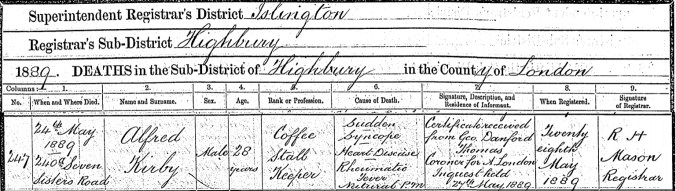 Superintendent Registrar's District Islington
Registrar's Sub-District Highbury
1889. DEATHS in the Sub-District of Highbury in the County of London
Columns:- 1. 2. 3. 4. 5. 6. 7. 8. 9.
No. When and Where Died. Name and Surname. Sex. Age. Rank or Profession. Cause of Death. Signature, Description, and Residence of Informant. When Registered. Signature of Registrar.
247
24th May
1889
240A Seven
Sisters Road
Alfred
Kirby
Male
28
years
Coffee
Stall
Keeper
Sudden
Syncope
Heart Disease
Rheumatic
Fever
Natural P.m
Certificate received
from Geo Danford
Thomas
Coroner for N. London
Inquest held
27th May 1889
Twenty
eighth
May
1889
R H
Mason
Registrar